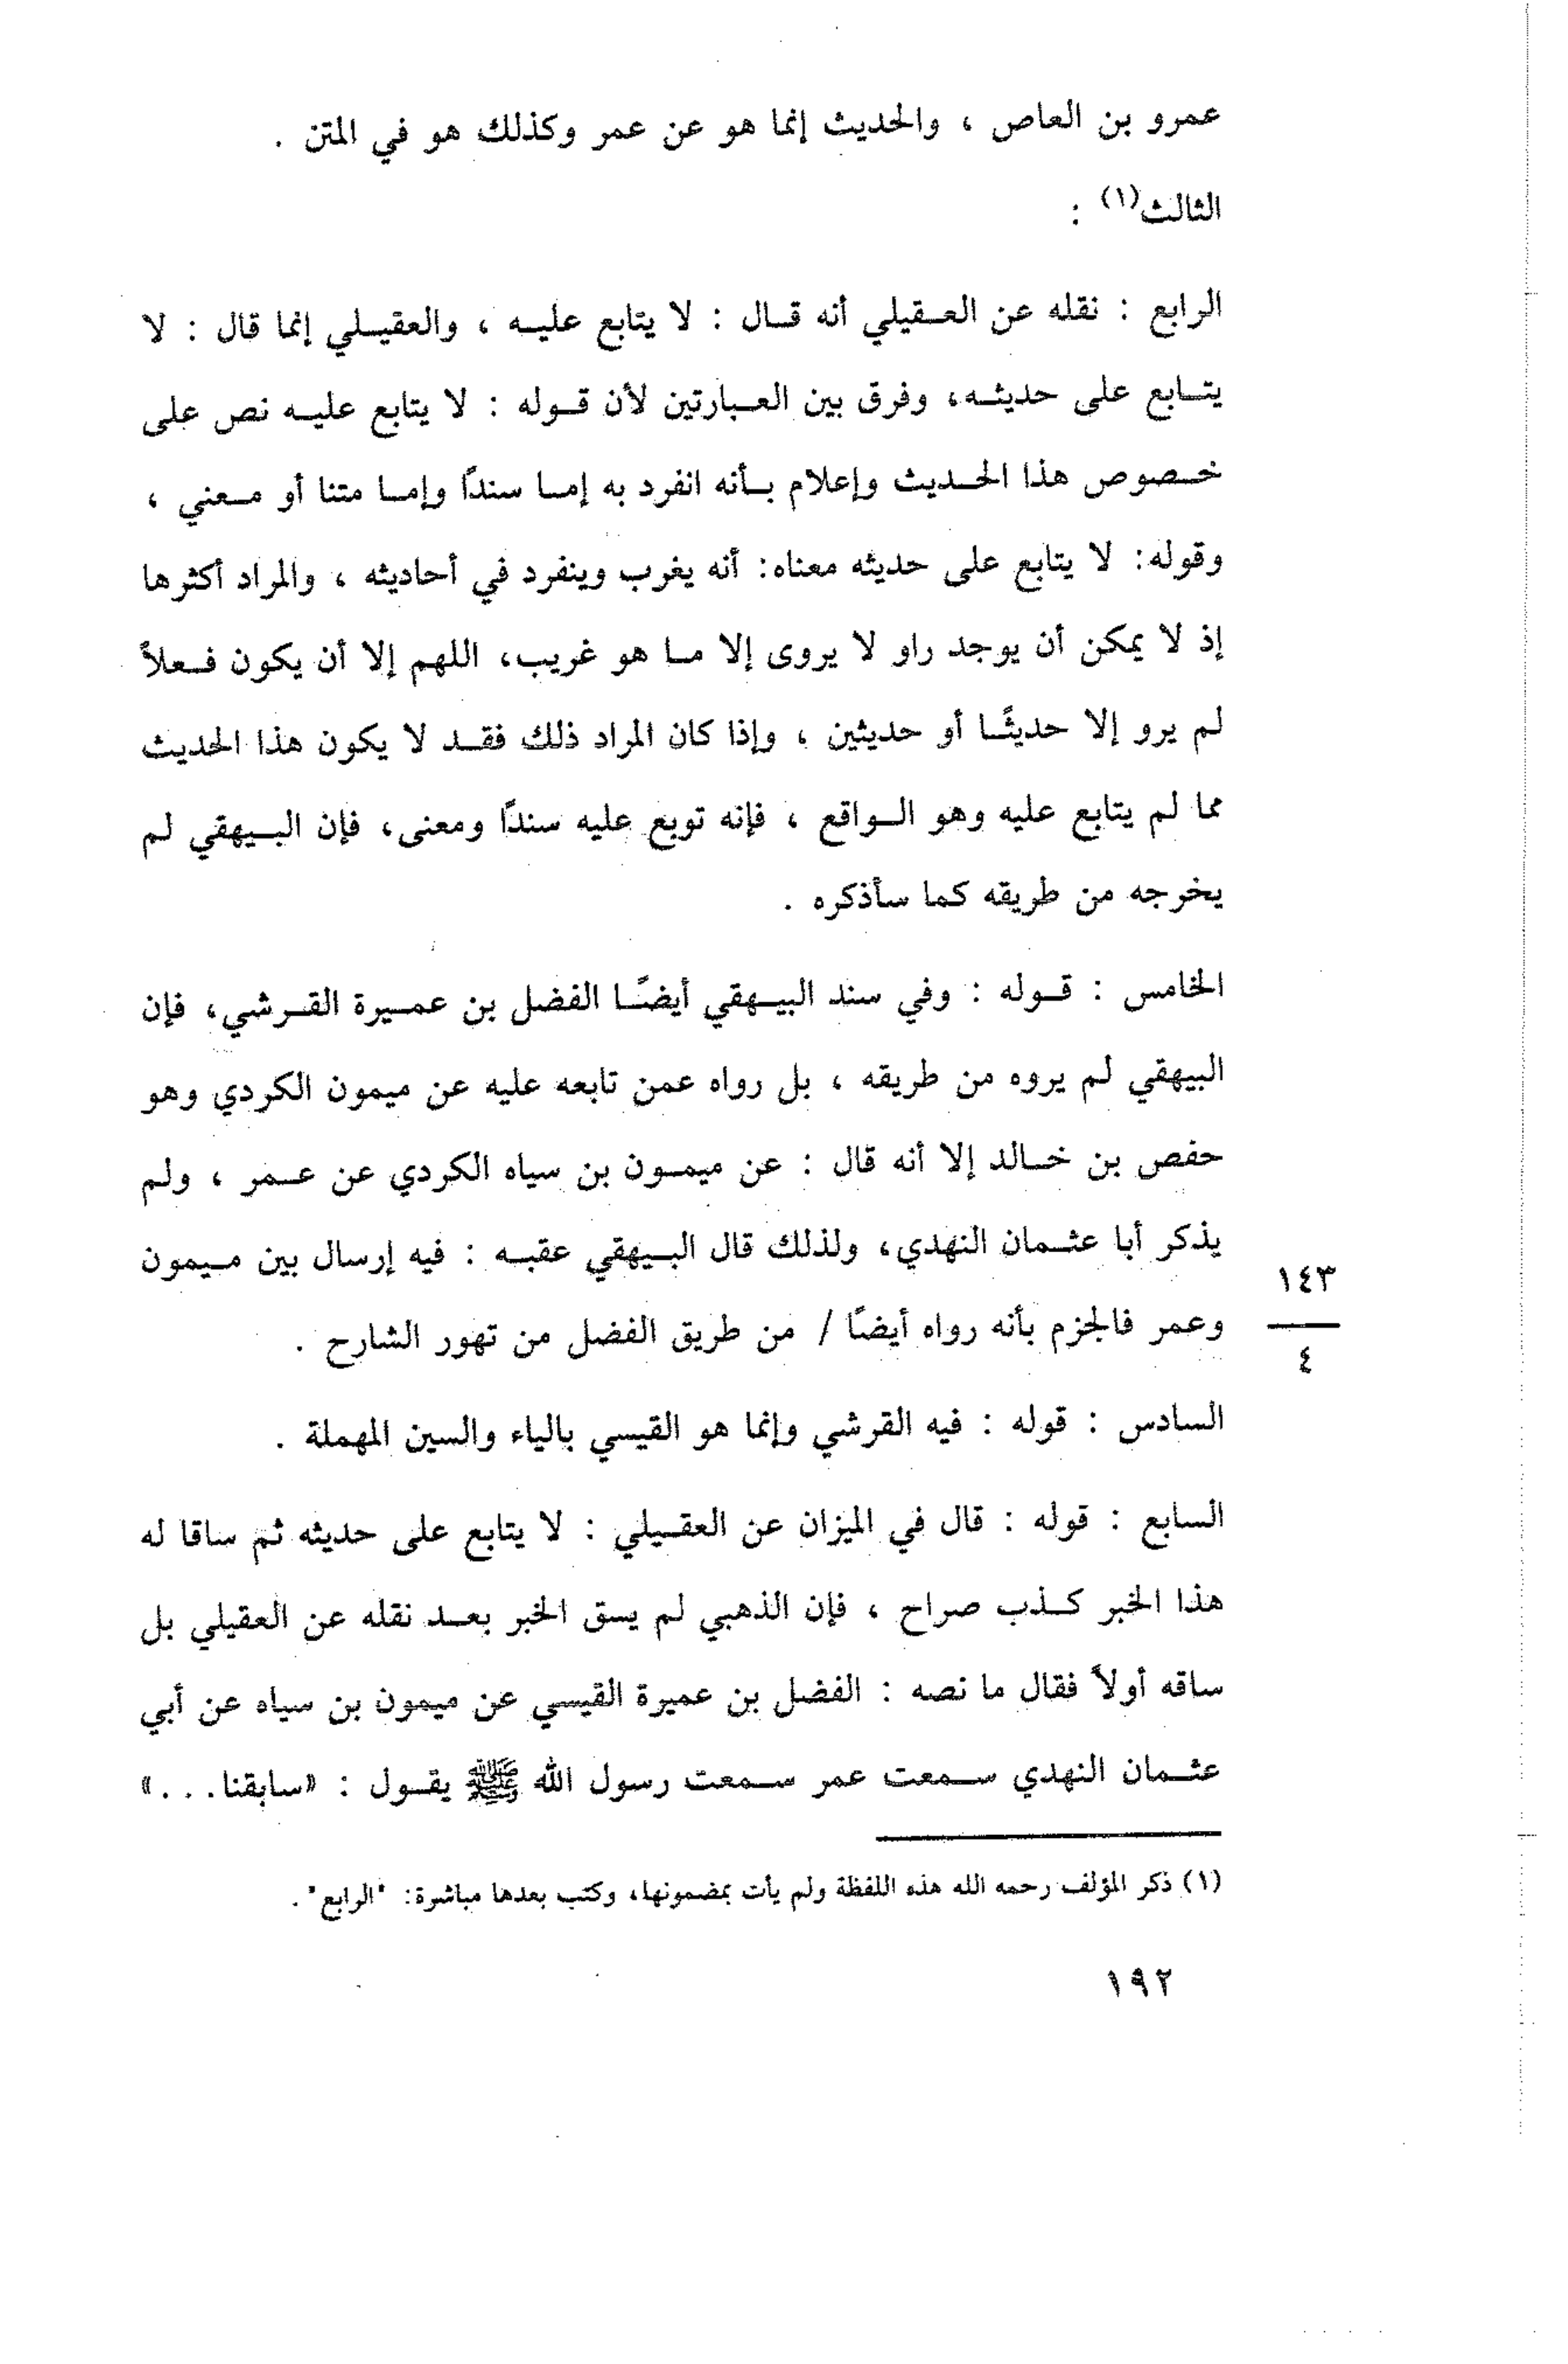 عمرو بن العاص ، والحديث إنما هو عن عمر وكذلك هو في المتن .
الثالث(١) :
الرابع : نقله عن العقيلي أنه قال : لا يتابع عليه ، والعقيلي إنما قال : لا
يتابع على حديثه، وفرق بين العبارتين لأن قوله : لا يتابع عليه نص على
خصوص هذا الحديث وإعلام بأنه انفرد به إما سندًا وإما متنا أو معني ،
وقوله: لا يتابع على حديثه معناه: أنه يغرب وينفرد في أحاديثه ، والمراد أكثرها
إذ لا يمكن أن يوجد راو لا يروى إلا ما هو غريب، اللهم إلا أن يكون فعلاً
لم يرو إلا حديثًا أو حديثين ، وإذا كان المراد ذلك فقد لا يكون هذا الحديث
مما لم يتابع عليه وهو الواقع ، فإنه توبع عليه سندًا ومعنى، فإن البيهقي لم
يخرجه من طريقه كما سأذكره .
الخامس : قوله : وفي سند البيهقي أيضًا الفضل بن عميرة القرشي، فإن
البيهقي لم يروه من طريقه ، بل رواه عمن تابعه عليه عن ميمون الكردي وهو
حفص بن خالد إلا أنه قال : عن ميمون بن سياه الكردي عن عمر ، ولم
يذكر أبا عثمان النهدي، ولذلك قال البيهقي عقبه : فيه إرسال بين ميمون
١٤٣
وعمر فالجزم بأنه رواه أيضًا / من طريق الفضل من تهور الشارح .
٤
السادس : قوله : فيه القرشي وإنما هو القيسي بالياء والسين المهملة .
السابع : قوله : قال في الميزان عن العقيلي : لا يتابع على حديثه ثم ساقا له
هذا الخبر كذب صراح ، فإن الذهبي لم يسق الخبر بعد نقله عن العقيلي بل
ساقه أولاً فقال ما نصه : الفضل بن عميرة القيسي عن ميمون بن سياه عن أبي
عثمان النهدي سمعت عمر سمعت رسول الله ﷺ يقول : «سابقنا...»
(١) ذكر المؤلف رحمه الله هذه اللفظة ولم يأت بمضمونها، وكتب بعدها مباشرة: "الرابع".
١٩٢